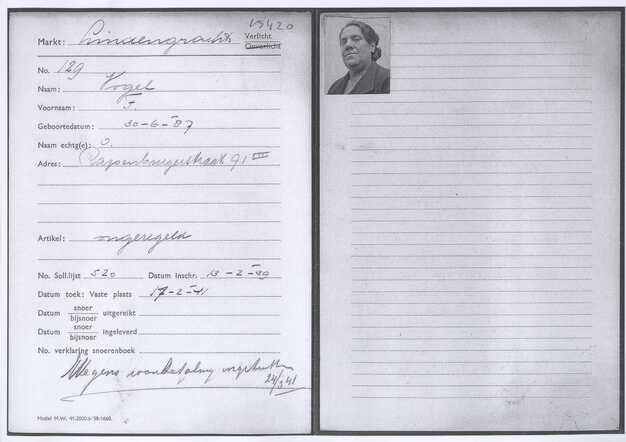 15420
Markt: Lindengracht Verlicht
Onverlicht
No. 129
Naam: Vogel
Voornaam: J.
Geboortedatum: 30-6-87
Naam echtg(e): O.
Adres: Rapenburgerstraat 91 III
Artikel: ongeregeld
No. Soll.lijst 520 Datum inschr. 13-2-40
Datum toek: Vaste plaats 17-2-41
Datum snoer
bijsnoer uitgereikt
Datum snoer
bijsnoer ingeleverd
No. verklaring snoerenboek
Wegens wanbetaling ingetrokken
24/3 41
Model M.W. 41-2000-6-'38-1660.